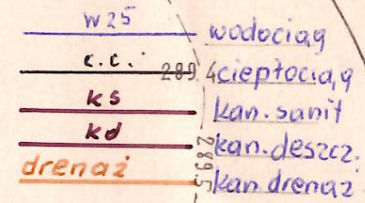 w25 wodociąg
c.c. 289.4 ciepłociąg
ks kan. sanit
kd kan. deszcz.
drenaż 289.5 kan drenaż